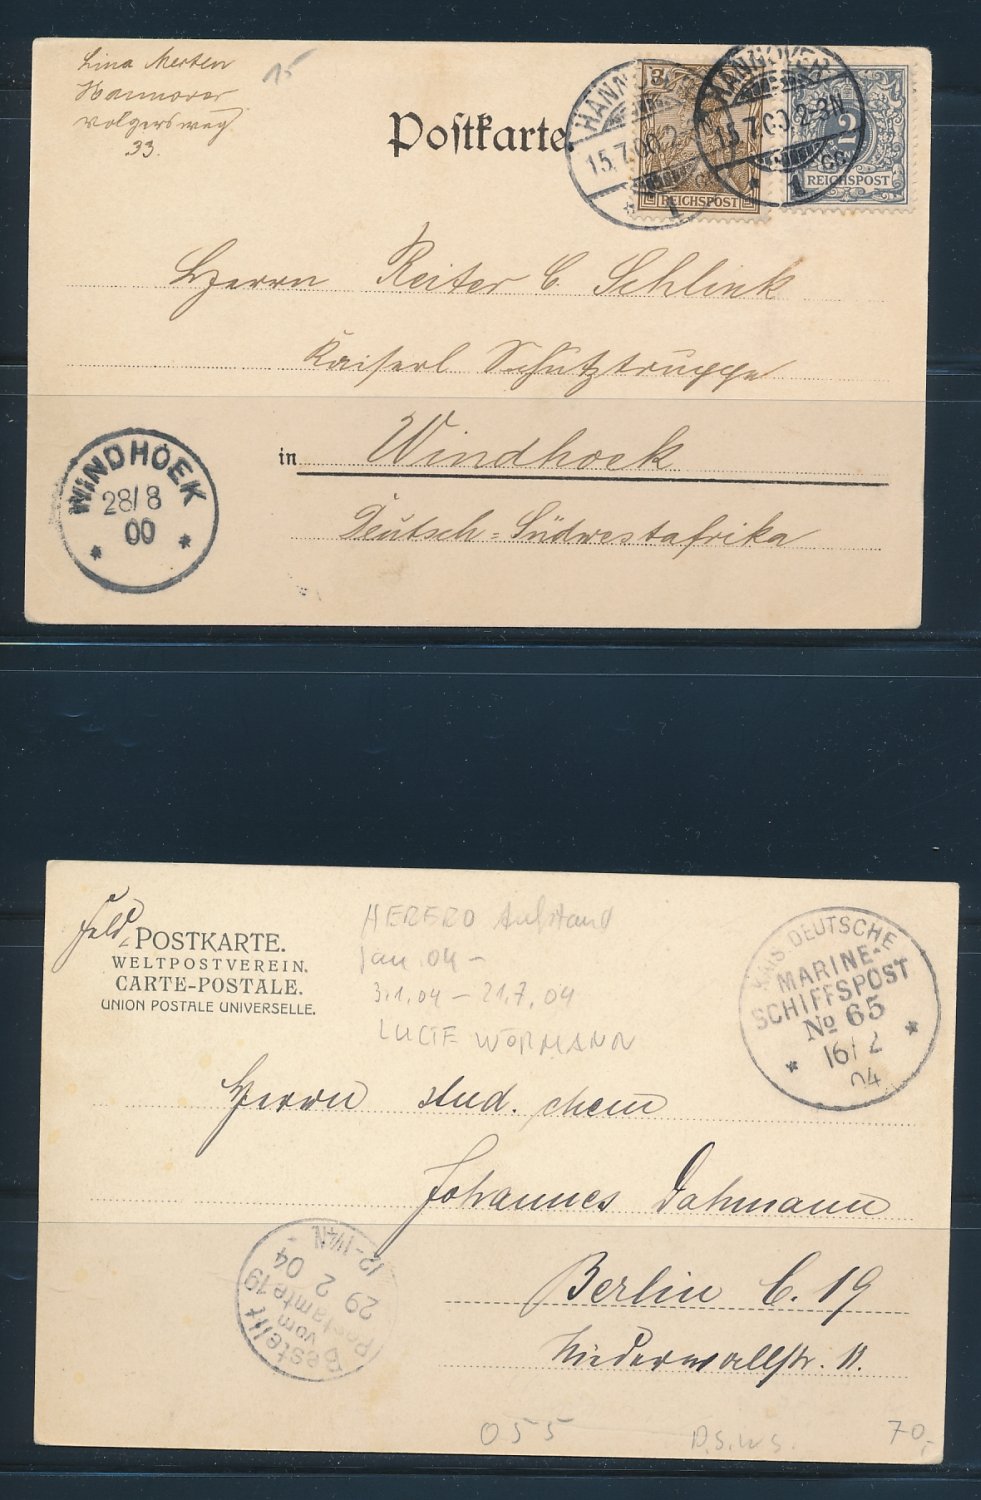 Lina Merten
Hannover
Volgersweg
33.
15
Postkarte.
HANNOVER
15.7.00.2-3N
1
3
REICHSPOST
HANNOVER
15.7.00.2-3N
* 1 cc.
2
REICHSPOST
Herrn Reiter C. Schlink
Kaiserl Schutztruppe
in Windhoek
Deutsch=Südwestafrika
WINDHOEK
28/8
00
* *
Feld
POSTKARTE.
WELTPOSTVEREIN.
CARTE-POSTALE.
UNION POSTALE UNIVERSELLE.
HERERO Aufstand
Jan. 04 -
3.1.04 - 21.7.04
LUCIE WÖRMANN
KAIS. DEUTSCHE
MARINE-
SCHIFFSPOST
No 65
* 16/2 *
04
Herrn stud. chem
Johannes Dahmann
Berlin C. 19
Niederwallstr. 11.
Bestellt
vom
Postamte 19
29 2 04
12-1¼N.
055
D.S.W.S.
70,-